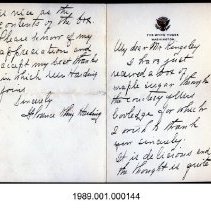 THE WHITE HOUSE
WASHINGTON
My dear Mr. Kingsley
I have just
received a box of
maple sugar through
the courtesy of
for which
I wish to thank
you sincerely
It is delicious and
the thought is quite
as nice as the
contents of the box.
Please know of my
appreciation and
accept my best thanks
in which Mr Harding
joins
Sincerely
Florence Kling Harding
1989.001.000144